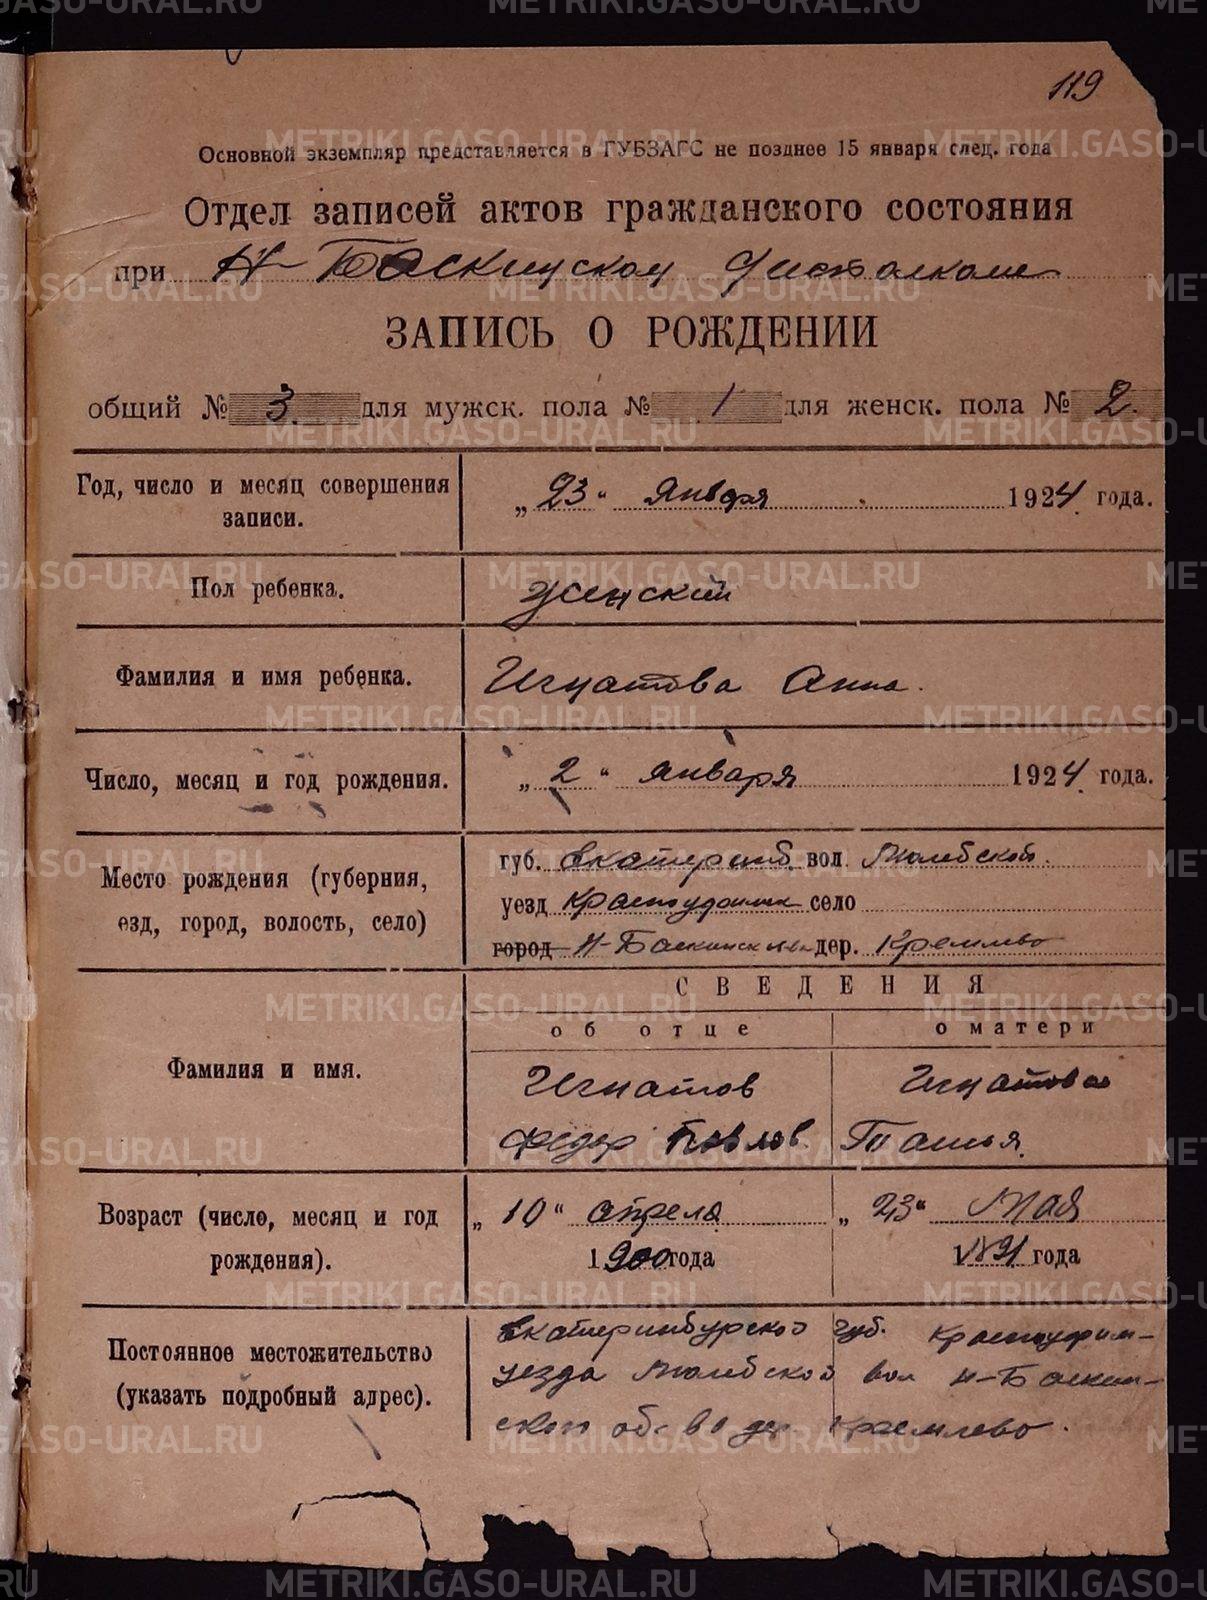 119
Основной экземпляр представляется в ГУБЗАГС не позднее 15 января след. года
Отдел записей актов гражданского состояния
при Н-Баскинском
ЗАПИСЬ О РОЖДЕНИИ
общий № 3. для мужск. пола № 1 для женск. пола № 2.
Год, число и месяц совершения записи. „ 23 “ января 1924. года.
Пол ребенка. женский
Фамилия и имя ребенка. Игнатова Анна.
Число, месяц и год рождения. „ 2 “ января 1924. года.
Место рождения (губерния, езд, город, волость, село)
губ. Екатеринб. вол. Молебской.
уезд село
город Н-Баскинск дер. Кремлево
СВЕДЕНИЯ
об отце
о матери
Фамилия и имя.
Игнатов
Федор Павлов
Игнатова
Возраст (число, месяц и год рождения).
„ 10 “ апреля
1900 года
„ 23 “ Мая
1891 года
Постоянное местожительство (указать подробный адрес).
Екатеринбурской губ. Красноуфим-
уезда Молебской вол Н-Баскин-
ском об-во дер. Кремлево.
METRIKI.GASO-URAL.RU